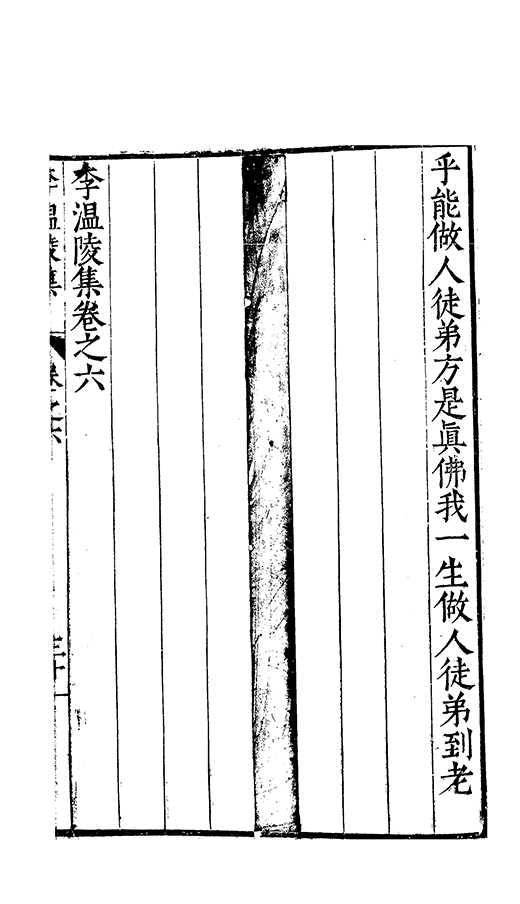 乎能做人徒弟方是眞佛我一生做人徒弟到老
李温陵集卷之六
李温陵集 卷之六 三十一